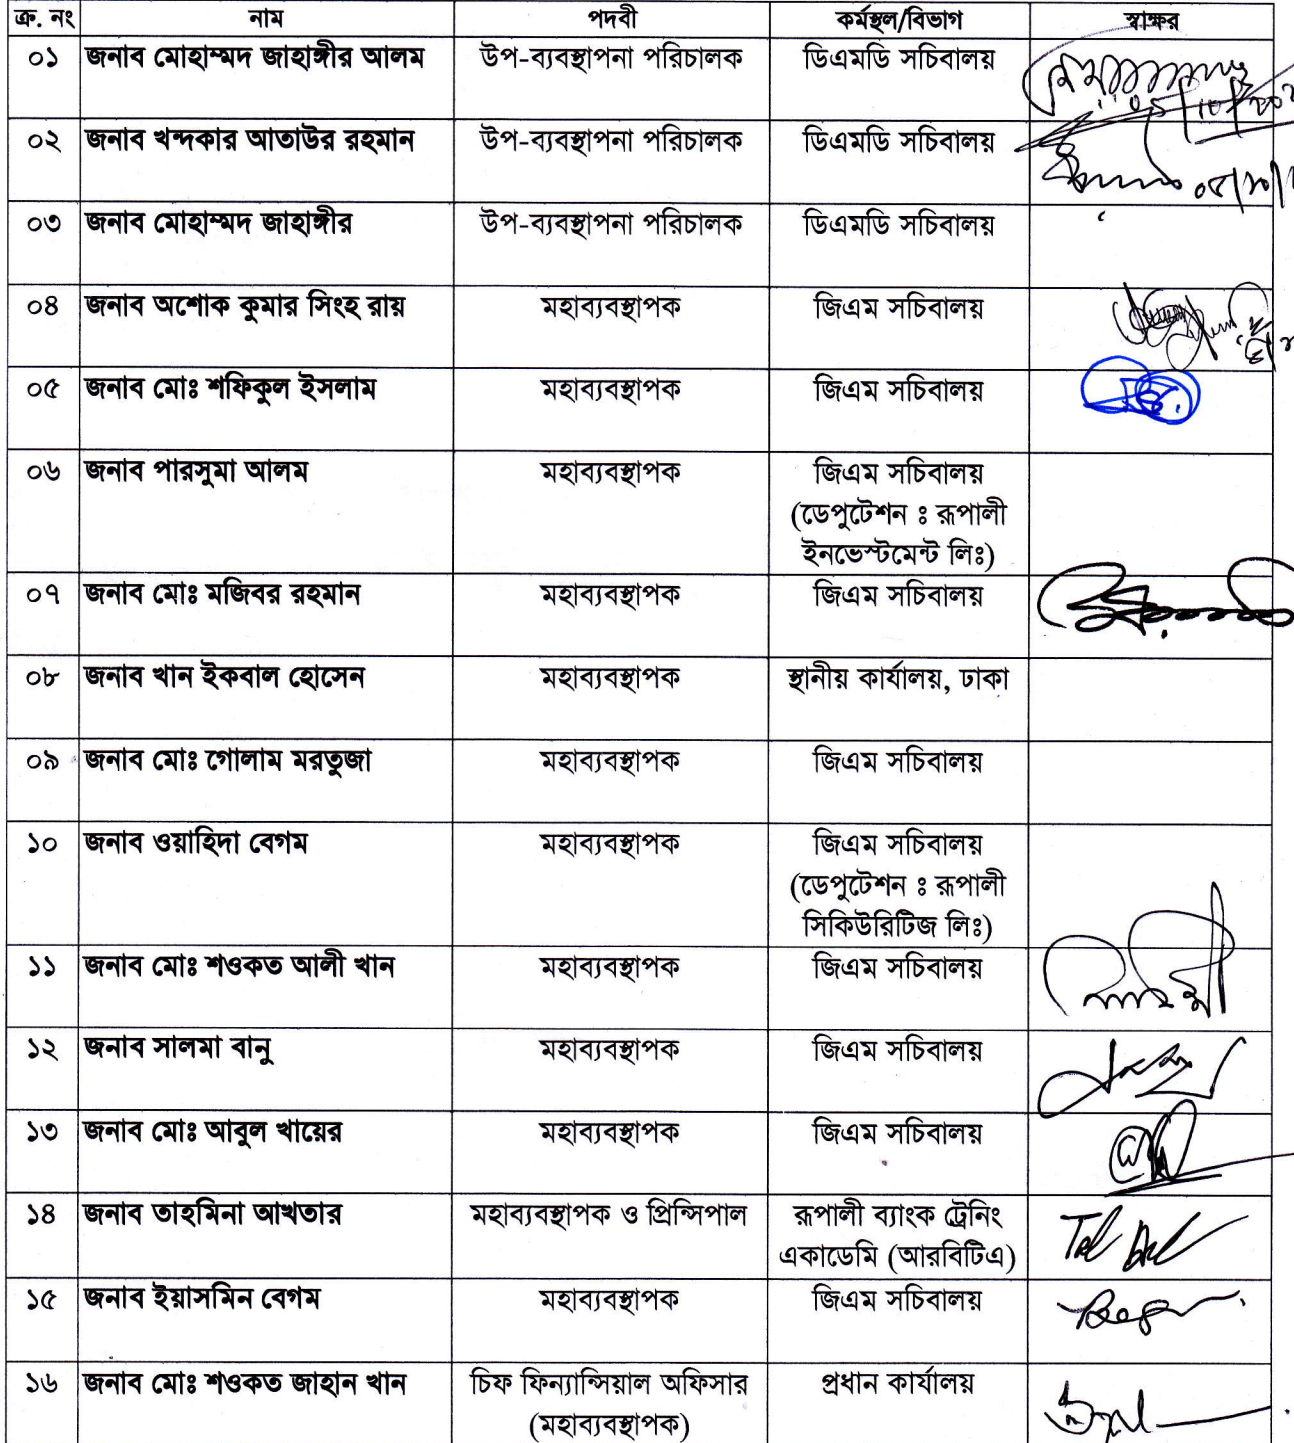 ক্র. নং নাম পদবী কর্মস্থল/বিভাগ স্বাক্ষর
০১ জনাব মোহাম্মদ জাহাঙ্গীর আলম উপ-ব্যবস্থাপনা পরিচালক ডিএমডি সচিবালয়
০২ জনাব খন্দকার আতাউর রহমান উপ-ব্যবস্থাপনা পরিচালক ডিএমডি সচিবালয়
০৩ জনাব মোহাম্মদ জাহাঙ্গীর উপ-ব্যবস্থাপনা পরিচালক ডিএমডি সচিবালয়
০৪ জনাব অশোক কুমার সিংহ রায় মহাব্যবস্থাপক জিএম সচিবালয়
০৫ জনাব মোঃ শফিকুল ইসলাম মহাব্যবস্থাপক জিএম সচিবালয়
০৬ জনাব পারসুমা আলম মহাব্যবস্থাপক জিএম সচিবালয়
(ডেপুটেশন ঃ রূপালী
ইনভেস্টমেন্ট লিঃ)
০৭ জনাব মোঃ মজিবর রহমান মহাব্যবস্থাপক জিএম সচিবালয়
০৮ জনাব খান ইকবাল হোসেন মহাব্যবস্থাপক স্থানীয় কার্যালয়, ঢাকা
০৯ জনাব মোঃ গোলাম মরতুজা মহাব্যবস্থাপক জিএম সচিবালয়
১০ জনাব ওয়াহিদা বেগম মহাব্যবস্থাপক জিএম সচিবালয়
(ডেপুটেশন ঃ রূপালী
সিকিউরিটিজ লিঃ)
১১ জনাব মোঃ শওকত আলী খান মহাব্যবস্থাপক জিএম সচিবালয়
১২ জনাব সালমা বানু মহাব্যবস্থাপক জিএম সচিবালয়
১৩ জনাব মোঃ আবুল খায়ের মহাব্যবস্থাপক জিএম সচিবালয়
১৪ জনাব তাহমিনা আখতার মহাব্যবস্থাপক ও প্রিন্সিপাল রূপালী ব্যাংক ট্রেনিং
একাডেমি (আরবিটিএ)
১৫ জনাব ইয়াসমিন বেগম মহাব্যবস্থাপক জিএম সচিবালয়
১৬ জনাব মোঃ শওকত জাহান খান চিফ ফিন্যান্সিয়াল অফিসার প্রধান কার্যালয়
(মহাব্যবস্থাপক)